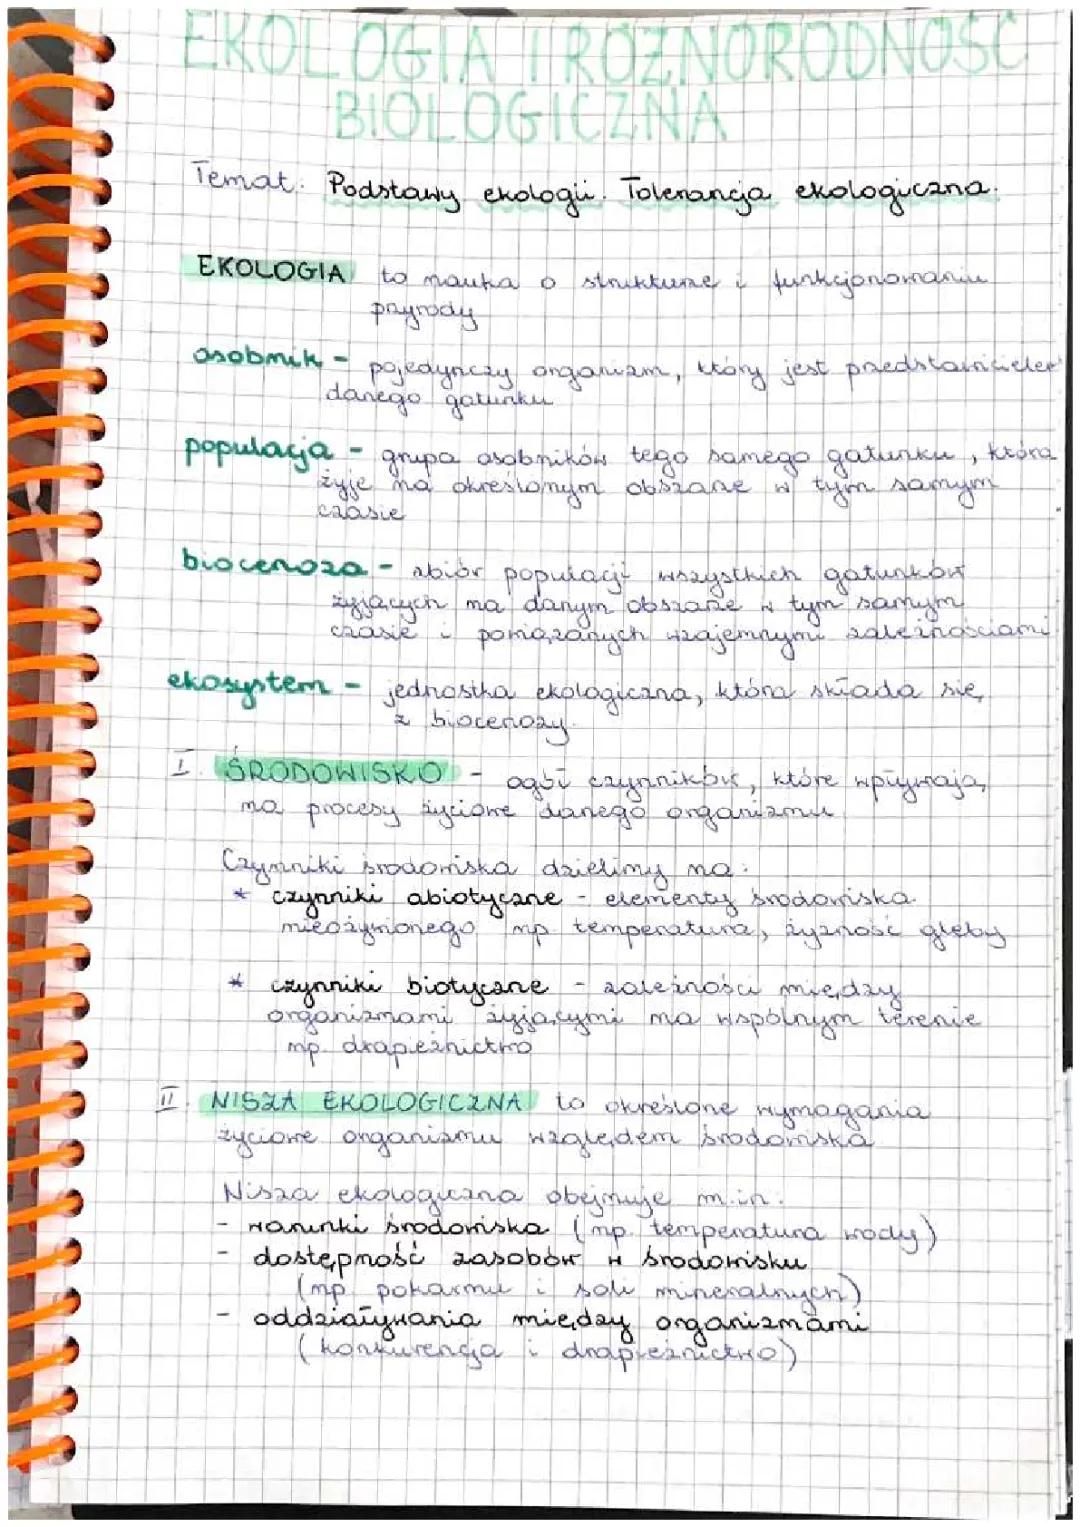 EKOLOGIA I RÓŻNORODNOŚĆ
BIOLOGICZNA
Temat: Podstawy ekologii. Tolerancja ekologiczna.
EKOLOGIA to nauka o strukturze i funkcjonowaniu
przyrody
osobnik - pojedynczy organizm, który jest przedstawicielem
danego gatunku
populacja - grupa osobników tego samego gatunku, która
żyje na określonym obszarze w tym samym
czasie
biocenoza - zbiór populacji wszystkich gatunków
żyjących na danym obszarze w tym samym
czasie i powiązanych wzajemnymi zależnościami
ekosystem - jednostka ekologiczna, która składa się
z biocenozy.
I. ŚRODOWISKO - ogół czynników, które wpływają
na procesy życiowe danego organizmu
Czynniki środowiska dzielimy na:
* czynniki abiotyczne - elementy środowiska
nieożywionego np. temperatura, żyzność gleby
* czynniki biotyczne - zależności między
organizmami żyjącymi na wspólnym terenie
np. drapieżnictwo
II. NISZA EKOLOGICZNA to określone wymagania
życiowe organizmu względem środowiska
Nisza ekologiczna obejmuje m.in:
- warunki środowiska (np. temperatura wody)
- dostępność zasobów w środowisku
(np. pokarmu i soli mineralnych)
- oddziaływania między organizmami
(konkurencja i drapieżnictwo)